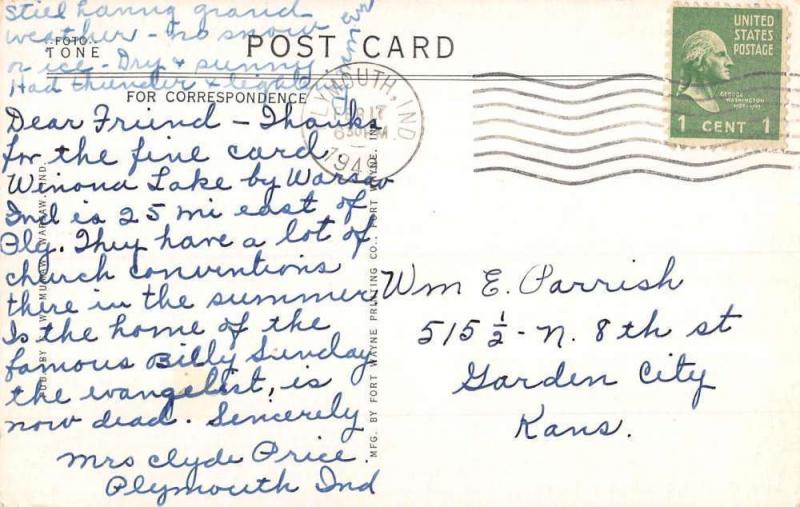 Still having grand
weather - no snow
or ice - Dry & sunny
Had thunder & lightning
FOTO
TONE
POST CARD
FOR CORRESPONDENCE
Dear Friend - Thanks
for the fine card.
Winona Lake by Warsaw
Ind is 25 mi east of
Ply. They have a lot of
church conventions
there in the summer
Is the home of the
famous Billy Sunday
the evangelist, is
now dead. Sincerely
Mrs Clyde Price.
Plymouth Ind
PLYMOUTH, IND
17
630 PM
1949
UNITED
STATES
POSTAGE
GEORGE
WASHINGTON
1 CENT 1
Wm E. Parrish
515 ½ - N. 8th st
Garden City
Kans.
MFG. BY FORT WAYNE PRINTING CO., FORT WAYNE, IND.
WARSAW, IND.